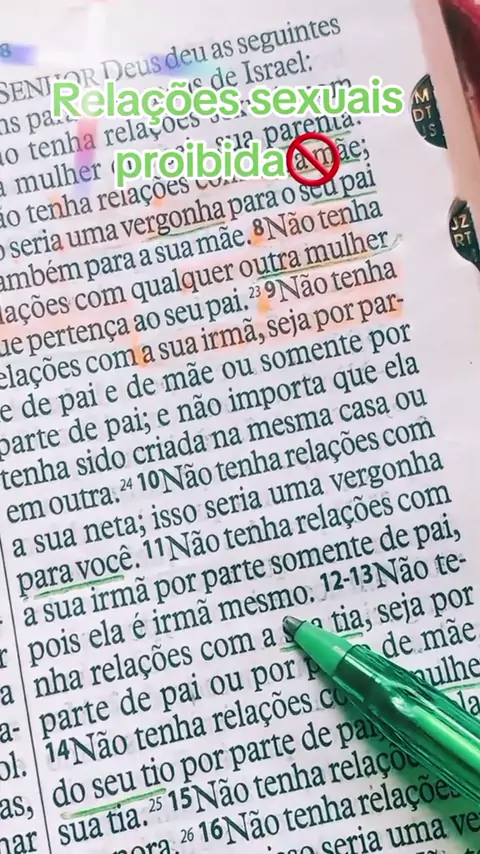 8
SENHOR Deus deu as seguintes
de Israel:
Relações sexuais
proibida
ão tenha relações
a mulher sua parenta.
ão tenha relações a mãe;
o seria uma vergonha para o seu pai
ambém para a sua mãe. 8Não tenha
lações com qualquer outra mulher
ue pertença ao seu pai. 23 9Não tenha
elações com a sua irmã, seja por par-
e de pai e de mãe ou somente por
parte de pai; e não importa que ela
tenha sido criada na mesma casa ou
em outra. 24 10Não tenha relações com
a sua neta; isso seria uma vergonha
para você. 11Não tenha relações com
a sua irmã por parte somente de pai,
pois ela é irmã mesmo. 12-13Não te-
nha relações com a tia, seja por
parte de pai ou por de mãe
14Não tenha relações
do seu tio por parte de pai
sua tia. 25 15Não tenha relaçõ
26 16Não tenha relaçõe
seria uma ve
M
DT
JS
JZ
RT
a
a-
ol.
as,
nar